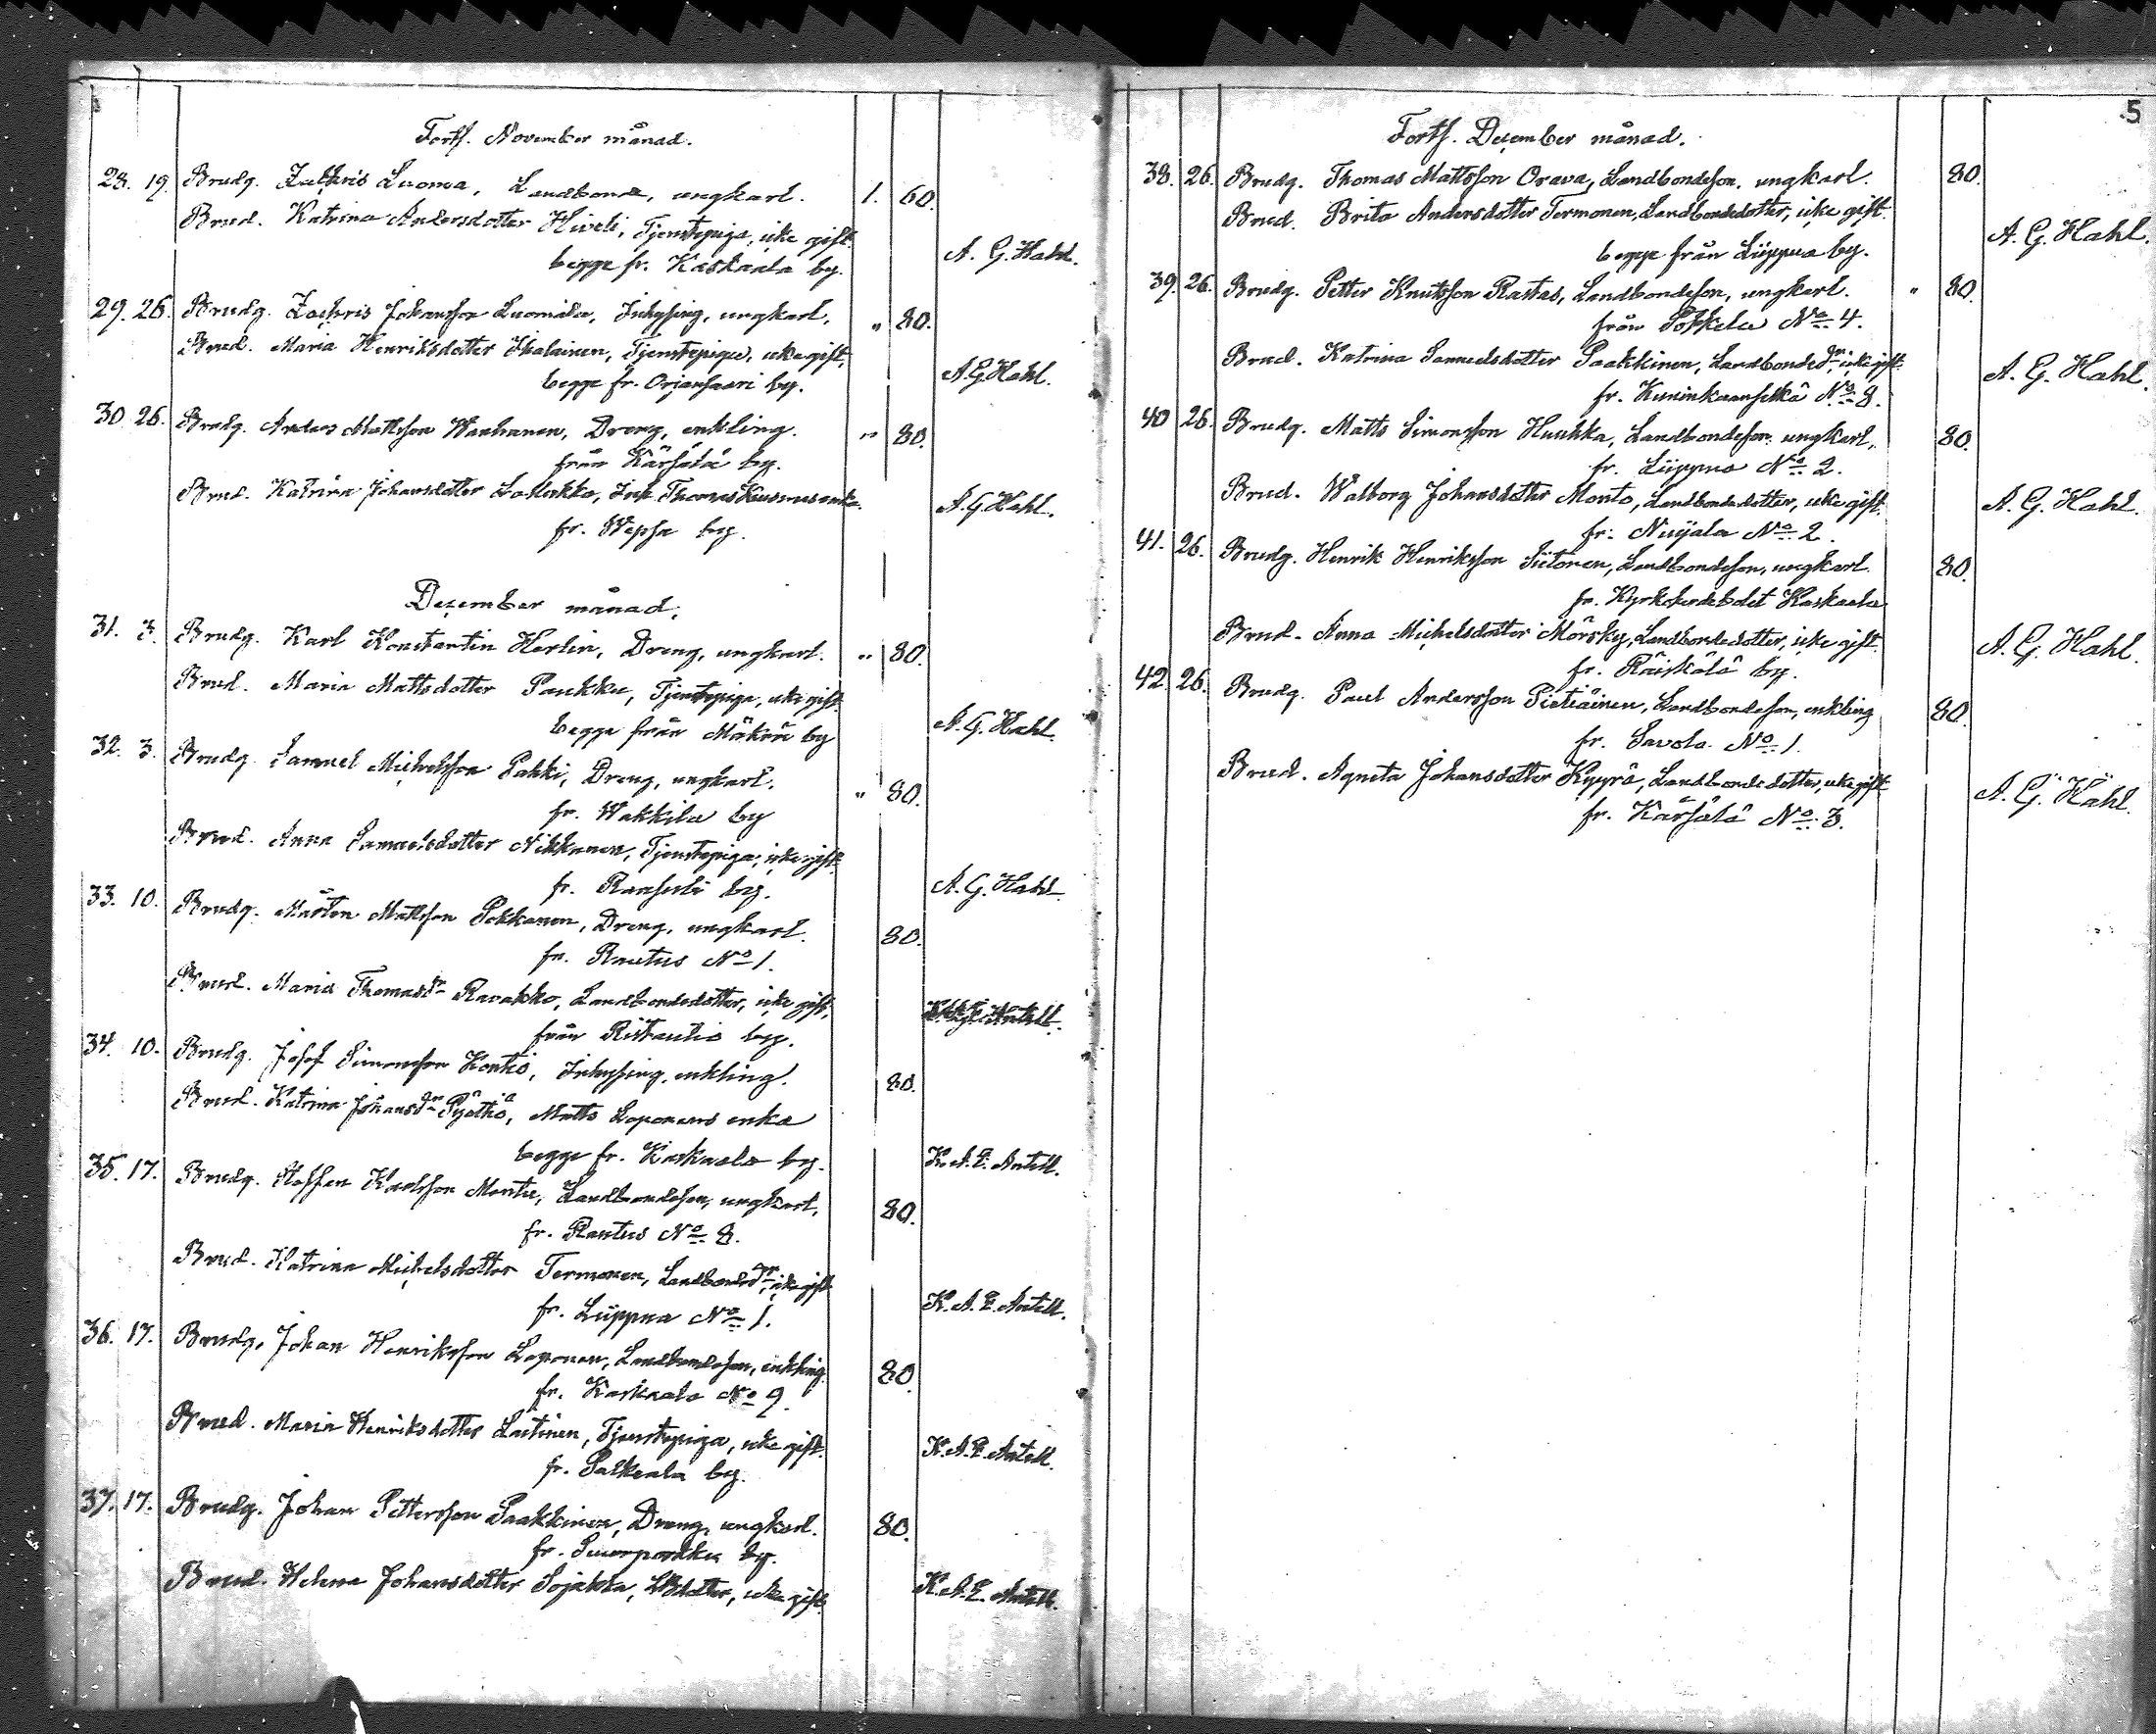 Forts. November månad.
28. 19. Brudg. Zachris Luoma, Landbonde, ungkarl. 1. 60.
Brud. Katrina Andersdotter Hiveli, Tjenstepiga, icke gift
begge fr. Kaskaala by. A. G. Hahl.
29. 26. Brudg. Zachris Johansson Luomala, Inhysing, ungkarl, " 80.
Brud. Maria Henriksdotter Ikalainen, Tjenstepiga, icke gift,
begge fr. Orjansaari by. A. G. Hahl.
30. 26. Brudg. Anders Mattsson Wanhanen, Dreng, enkling. " 80.
från Kärsälä by.
Brud. Katrina Johansdotter Inh. Thomas enka.
fr. Wepsa by. A. G. Hahl.
December månad.
31. 3. Brudg. Karl Konstantin Herlin, Dreng, ungkarl. " 80.
Brud. Maria Mattsdotter Paukku, Tjenstepiga, icke gift.
begge från Mäkrä by A. G. Hahl.
32. 3. Brudg. Samuel Michelsson Pakki, Dreng, ungkarl. " 80.
fr. Wakkila by
Brud. Anna Samuelsdotter Nikkanen, Tjenstepiga, icke gift.
fr. Raasuli by. A. G. Hahl
33. 10. Brudg. Mårten Mattsson Pekkanen, Dreng, ungkarl. 80.
fr. Rautus No 1.
Brud. Maria Thomasdr Ravakko, Landbondedotter, icke gift,
från Ristautio by.
34. 10. Brudg. Josef Simonsson Kontio, Inhysing, enkling. 80.
Brud. Katrina Johansdr Pyöthiä, Matts Loponens enka
begge fr. Kaskaala by. K. A. E. Antell.
35. 17. Brudg. Staffan Karlsson Monto, Landbondeson, ungkarl, 80.
fr. Rautus No 8.
Brud. Katrina Michelsdotter Termonen, Landbondedr, icke gift
fr. Liippua No 1. K. A. E. Antell.
36. 17. Brudg. Johan Henriksson Loponen, Landbondeson, enkling 80.
fr. Kaskaala No 9.
Brud. Maria Henriksdotter Laitinen, Tjenstepiga, icke gift.
fr. Palkeala by. K. A. E. Antell.
37. 17. Brudg. Johan Pettersson Paakkinen, Dreng, ungkarl. 80.
fr. Suurporkku by.
Brud. Helena Johansdotter Sojakka, Lbdotter, icke gift. K. A. E. Antell.
5
Forts. December månad.
38. 26. Brudg. Thomas Mattsson Orava, Landbondeson, ungkarl. 80.
Brud. Brita Andersdotter Termonen, Landbondedotter, icke gift.
begge från Liippua by. A. G. Hahl.
39. 26. Brudg. Petter Knutsson Rastas, Landbondeson, ungkarl. " 80.
från Potkela No 4.
Brud. Katrina Samuelsdotter Paakkinen, Landbondedr, icke gift.
fr. Kuninkaanselkä No 8. A. G. Hahl.
40 26. Brudg. Matts Simonsson Huuhka, Landbondeson, ungkarl, 80.
fr. Liippua No 2.
Brud. Walborg Johansdotter Monto, Landbondedotter, icke gift.
fr. Nuijala No 2. A. G. Hahl.
41. 26. Brudg. Henrik Henriksson Siitonen, Landbondeson, ungkarl. 80.
fr. Kyrkolandebolet Kaskaala
Brud. Anna Michelsdotter Mörsky, Landbondedotter, icke gift.
fr. Räiskälä by. A. G. Hahl.
42. 26. Brudg. Paul Andersson Pietiäinen, Landbondeson, enkling 80.
fr. Savola No 1.
Brud. Agneta Johansdotter Kyyrö, Landbondedotter, icke gift
fr. Kärsälä No 3. A. G. Hahl.